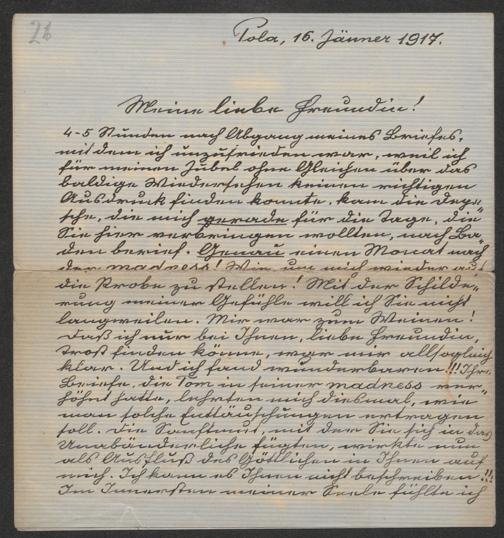 26
Pola, 16. Jänner 1917.
Meine liebe Freundin!
4-5 Stunden nach Abgang meines Briefes,
mit dem ich unzufrieden war, weil ich
für meinen Jubel ohne Gleichen über das
baldige Wiedersehen keinen richtigen
Ausdruck finden konnte, kam die Depe-
sche, die mich gerade für die Tage, die
Sie hier verbringen wollten, nach Ba-
den berief. Genau einen Monat nach
der madness! Wie um mich wieder auf
die Probe zu stellen! Mit der Schilde-
rung meiner Gefühle will ich Sie nicht
langweilen. Mir war zum Weinen!
Daß ich nur bei Ihnen, liebe Freundin,
Trost finden könne, war mir allsogleich
klar. Und ich fand wunderbaren!!! Ihre
Briefe, die Tom in seiner madness ver-
höhnt hatte, lehrten mich diesmal, wie
man solche Enttäuschungen ertragen
soll. Die Sanftmut, mit der Sie sich in das
Unabänderliche fügten, wirkte nun
als Ausfluß des Göttlichen in Ihnen auf
mich. Ich kann es Ihnen nicht beschreiben!!!
Im Innersten meiner Seele fühlte ich